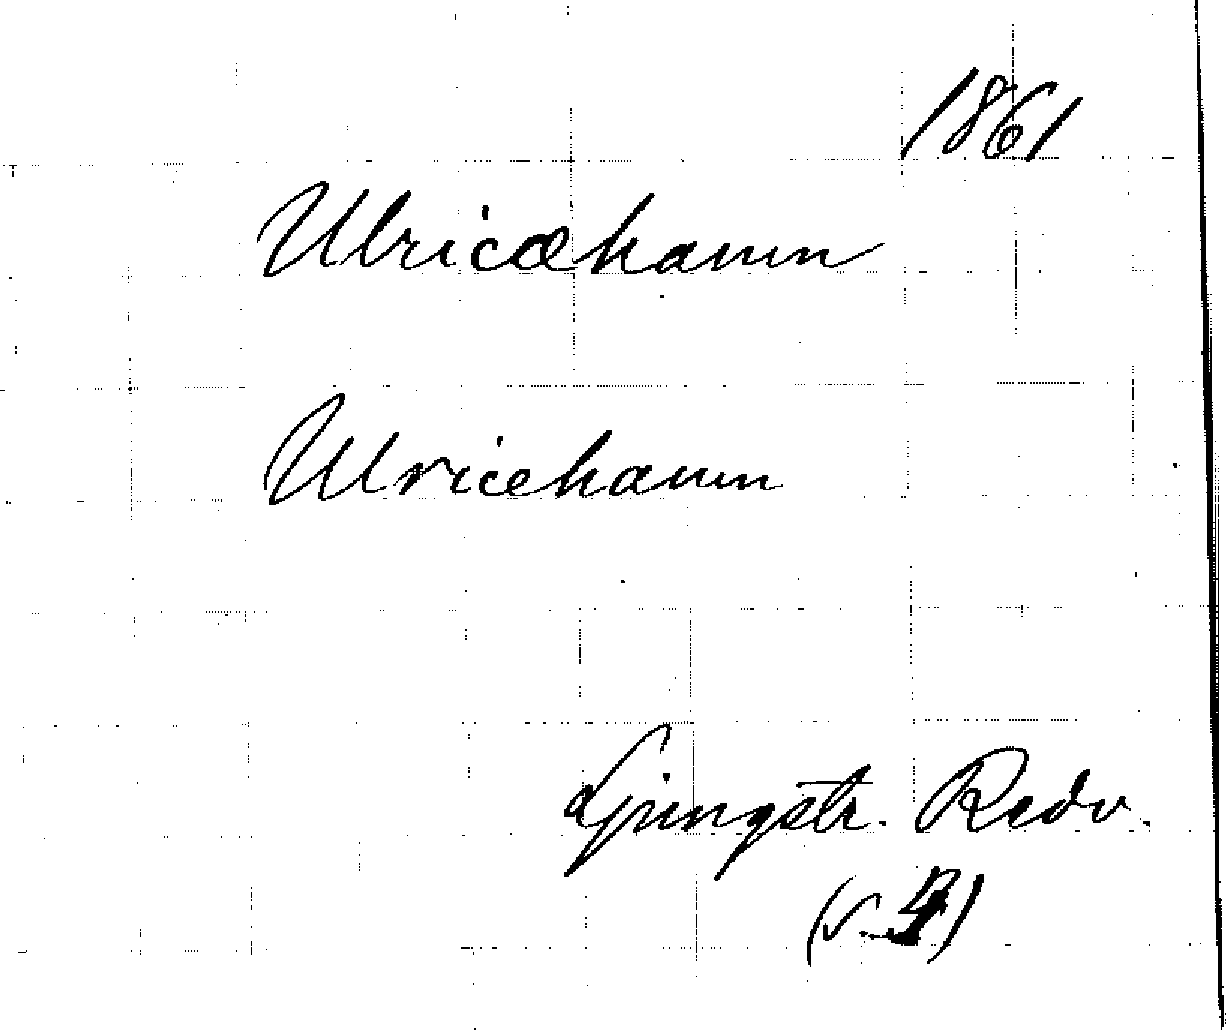 1861
Ulricæhamn
Ulricehamn
Ljungstr. Redv.
(s. 4)